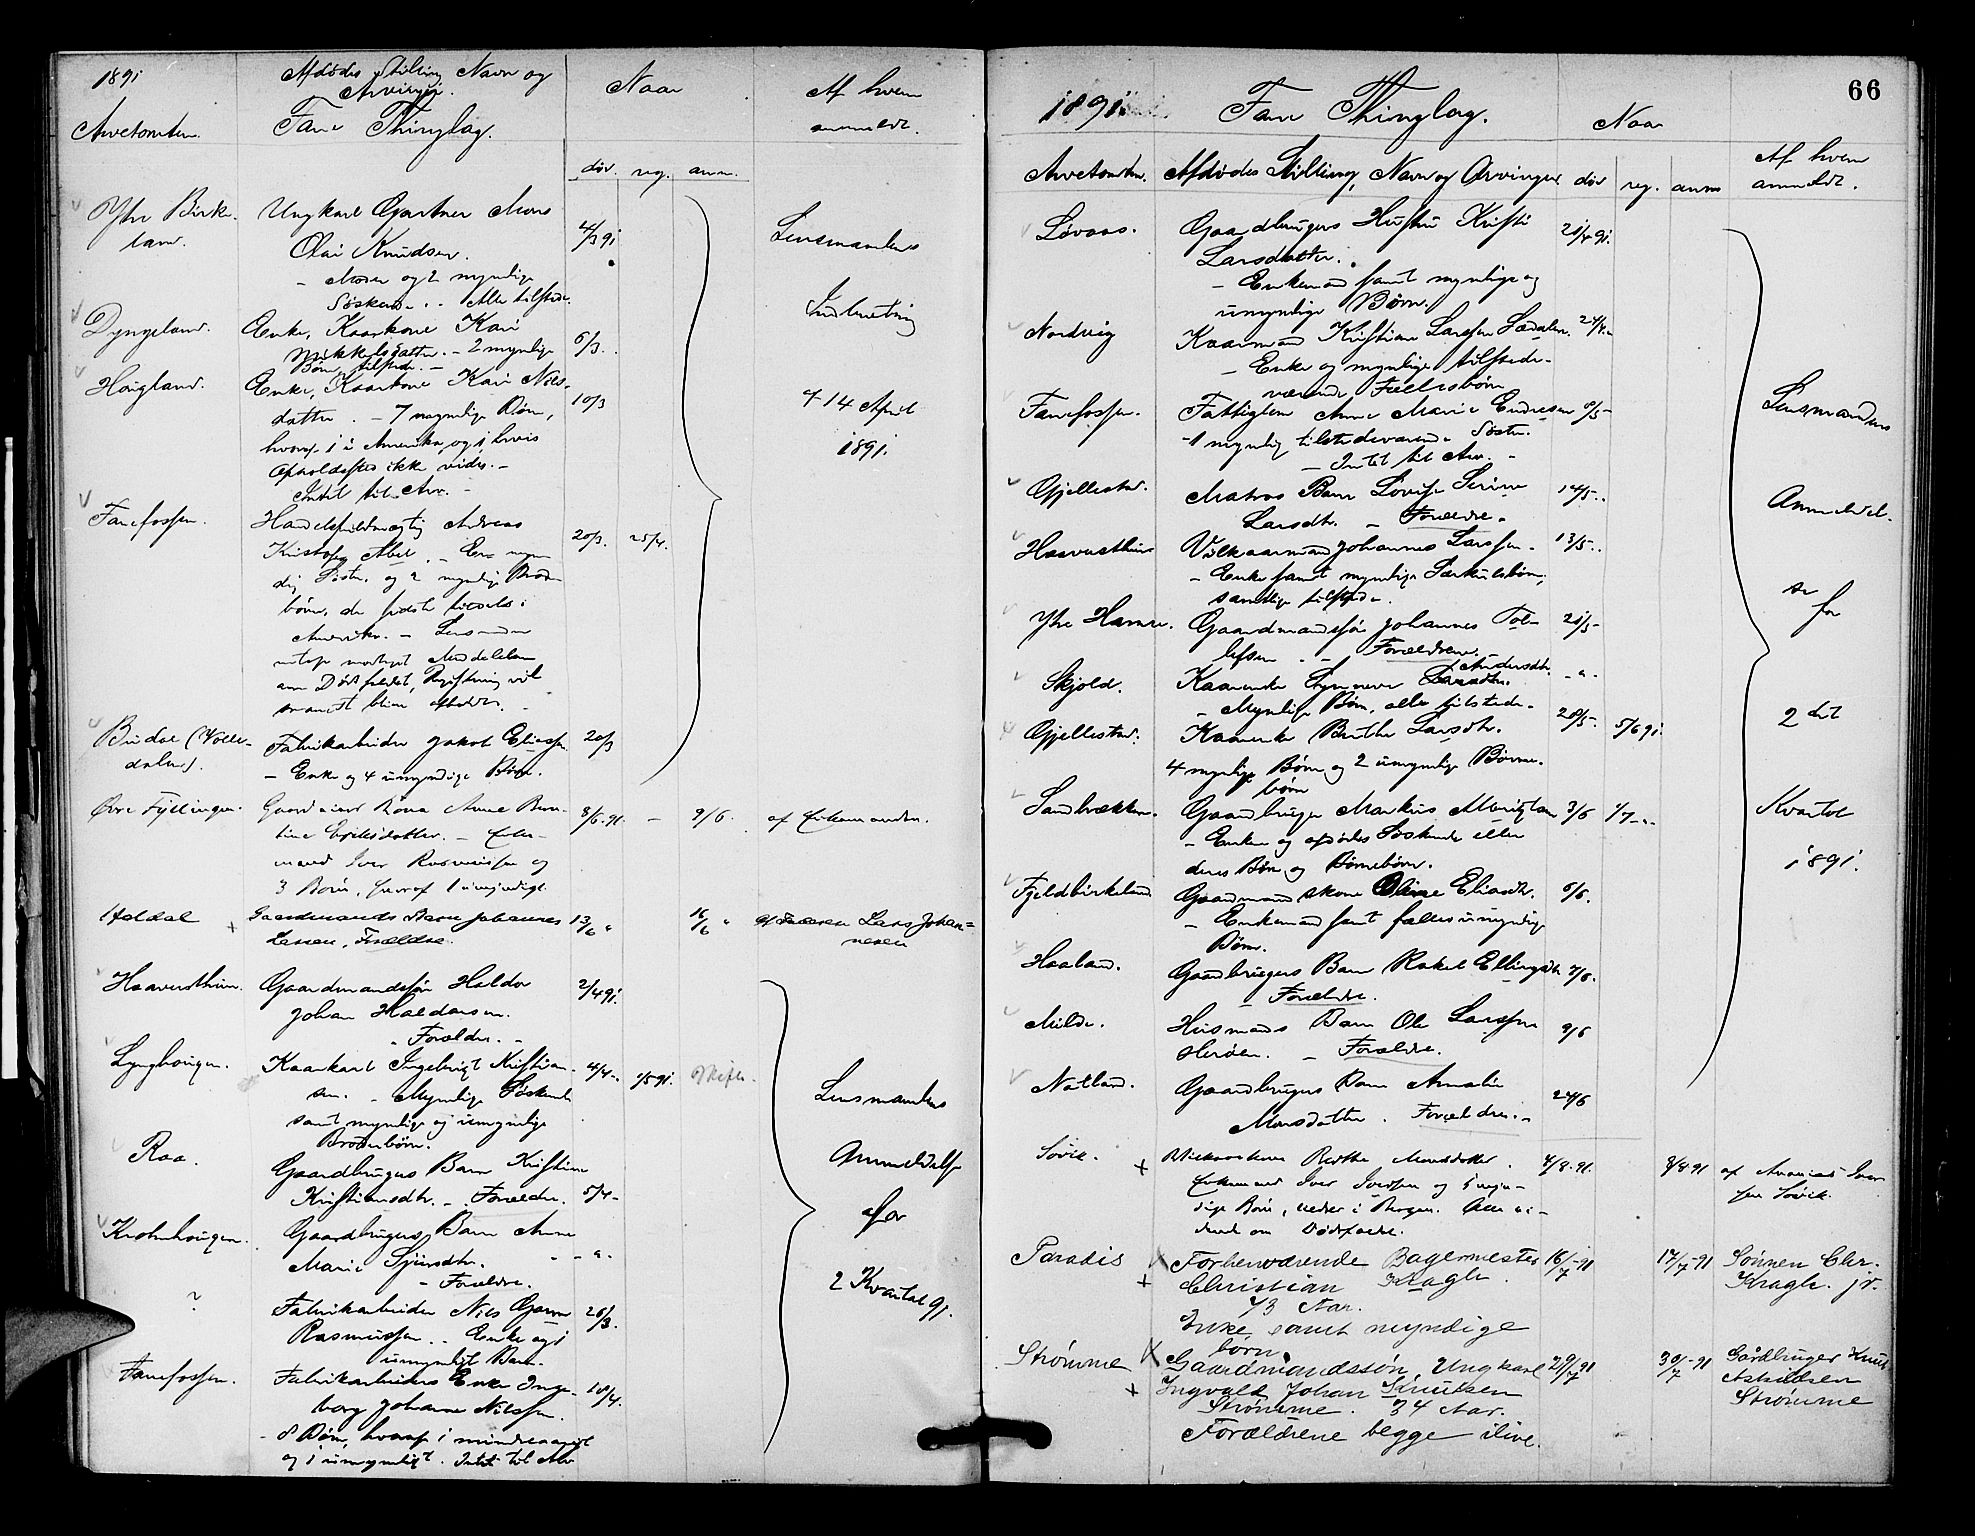 1891
Afdødes Stilling Navn og
Arvinger.
Naar
Af hvem
anmeldt.
Arvetomten.
Fane Thinglag.
død. reg. anm.
Ytre Birke-
land.
Ungkarl Gartner Mons
Olai Knudsen.
- Moder og 2 myndige
Søskende. - Alle tilstede.
4/3 91
Lensmandens
Indberetning
Dyngeland.
Enke, Kaarkone Kari
Mikkelsdatter. - 2 myndige
Børn tilstede. -
6/3.
Haugland.
Enke, Kaarkone Kari Nils-
datter. - 7 myndige Børn,
hvoraf 1 i Amerika og 1 hvis
Opholdssted ikke vides. -
Intet til Arv. -
10/3
14 April
1891.
Fanefossen.
Handelsfuldmægtig Andreas
Kristofer Abel. - En myn-
dig Søster og 2 myndige Broder-
børn, de sidste tildels i
Amerika. - Lensmanden
Meddelelse
om Dødsfaldet, Registrering vil
blive afholdt. -
20/3. 25/4.
Birdal (
dalen).
Fabrikarbeider Jakob Eliassen
- Enke og 4 umyndige Børn.
20/3
Øvre Fyllingen.
Gaardeier Kona Anne Ber-
tine Eriksdatter. - Enke-
mand Iver Rasmussen og
3 Børn, heraf 1 umyndigt.
8/6.91. - 9/6. af Enkemanden.
Haldal
Gaardmands Barn Johannes
Larsen, Forældre.
13/6 " 16/6 " af Faderen Lars Johan=
nesen
Haavardthun.
Gaardmandssøn Haldor
Johan Haldorsen.
- Forældre. -
2/4 91.
Lynghougen.
Kaarkarl Ingebrigt Kristian-
sen. - Myndige Søskende
samt myndige og umyndige
Broderbørn.
4/4 -. 1/5 91. Skifte.
Lensmandens
Anmeldelse
for
2 Kvartal 91.
Raa.
Gaardbrugers Barn Kristine
Kristiansdtr. - Forældre.
5/4 -
Krohnhougen.
Gaardbrugers Barn Anne
Marie Sjursdtr.
- Forældre.
- " -
?
Fabrikarbeider Nils Gjerm
Rasmussen. - Enke og 1
umyndigt Barn.
26/3.
Fanefossen.
Fabrikarbeiders Enke Inge-
borg Johanne Nilssen.
- 8 Børn, hvoraf 1 mindreaarigt
og 1 umyndigt. Intet til Arv
18/4.
66
1891.
Fane Thinglag.
Naar
Arvetomten.
Afdødes Stilling, Navn og Arvinger
død reg. anm
Af hvem
anmeldt.
Løvaas.
Gaardbrugers Hustru Kristi
Larsdatter.
- Enkemand samt myndige og
umyndige Børn.
21/4 91.
Nordvig
Kaarmand Kristian Larssen Sædalen.
- Enke og myndige tilstede-
værende Fællesbørn
24/4 -
Fanefossen.
Fattiglem Anne Marie Endresen
- 1 myndig tilstedeværende Søster.
- Intet til Arv. -
8/5 -
Lensmandens
Anmeldel-
se
for
2det
Kvartal
1891.
Gjellestad.
Matros Barn Lovise Serine
Larsdtr. - Forældre.
14/5 -.
Haavardthun
Vilkaarmand Johannes Larssen.
- Enke samt myndige Særkulsbørn,
samtlige tilstede.
13/5 -.
Ytre Hamre.
Gaardmandssøn Johannes Tol-
lefsen. - Forældrene.
21/5 -
Skjold.
Kaarenke Synneve Andersdtr.
- Myndige Børn, alle tilstede.
- " -
Gjellestad.
Kaarenke Brithe Larsdtr.
4 myndige Børn og 2 umyndige Børne-
børn
28/5 - 5/6 91.
Sandbrekken.
Gaardbruger Markus Monsen
- Enke og afdødes Søskende eller
deres Børn og Børnebørn.
3/6 1/7 -
Fjeldbirkeland
Gaardmandskone Oline Eliasdtr.
- Enkemand samt fælles umyndige
Børn.
6/6.
Haaland.
Gaardbrugers Barn Rakel Ellingsdtr
- Forældre.
7/6.
Milde.
Husmands Barn Ole Larssen
Herøen. - Forældre.
9/6
Natland.
Gaardbrugers Barn Amalie
Monsdatter. Forældre. -
24/6
Søvik.
Vilkaarskone Berthe Monsdatter.
Enkemand Iver Iversen og 5 myn-
dige Børn, neder i Bergen. Alle vi-
dende om Dødsfaldet.
4/8.91. 8/8 91 af Iver-
sen Søvik.
Paradis
Forhenværende Bagermester
Christian Kragh.
73 Aar.
Enke samt myndige
børn
16/7-91 17/7-91 Sønnen Chr.
Kragh. jr.
Strømme
Gaardmandssøn, Ungkarl
Ingvald Johan Knutsen
Strømme. 34 Aar.
Forældrene begge ilive.
29/7 91 30/7-91 Gårdbruger Knut
Askildsen
Strømme